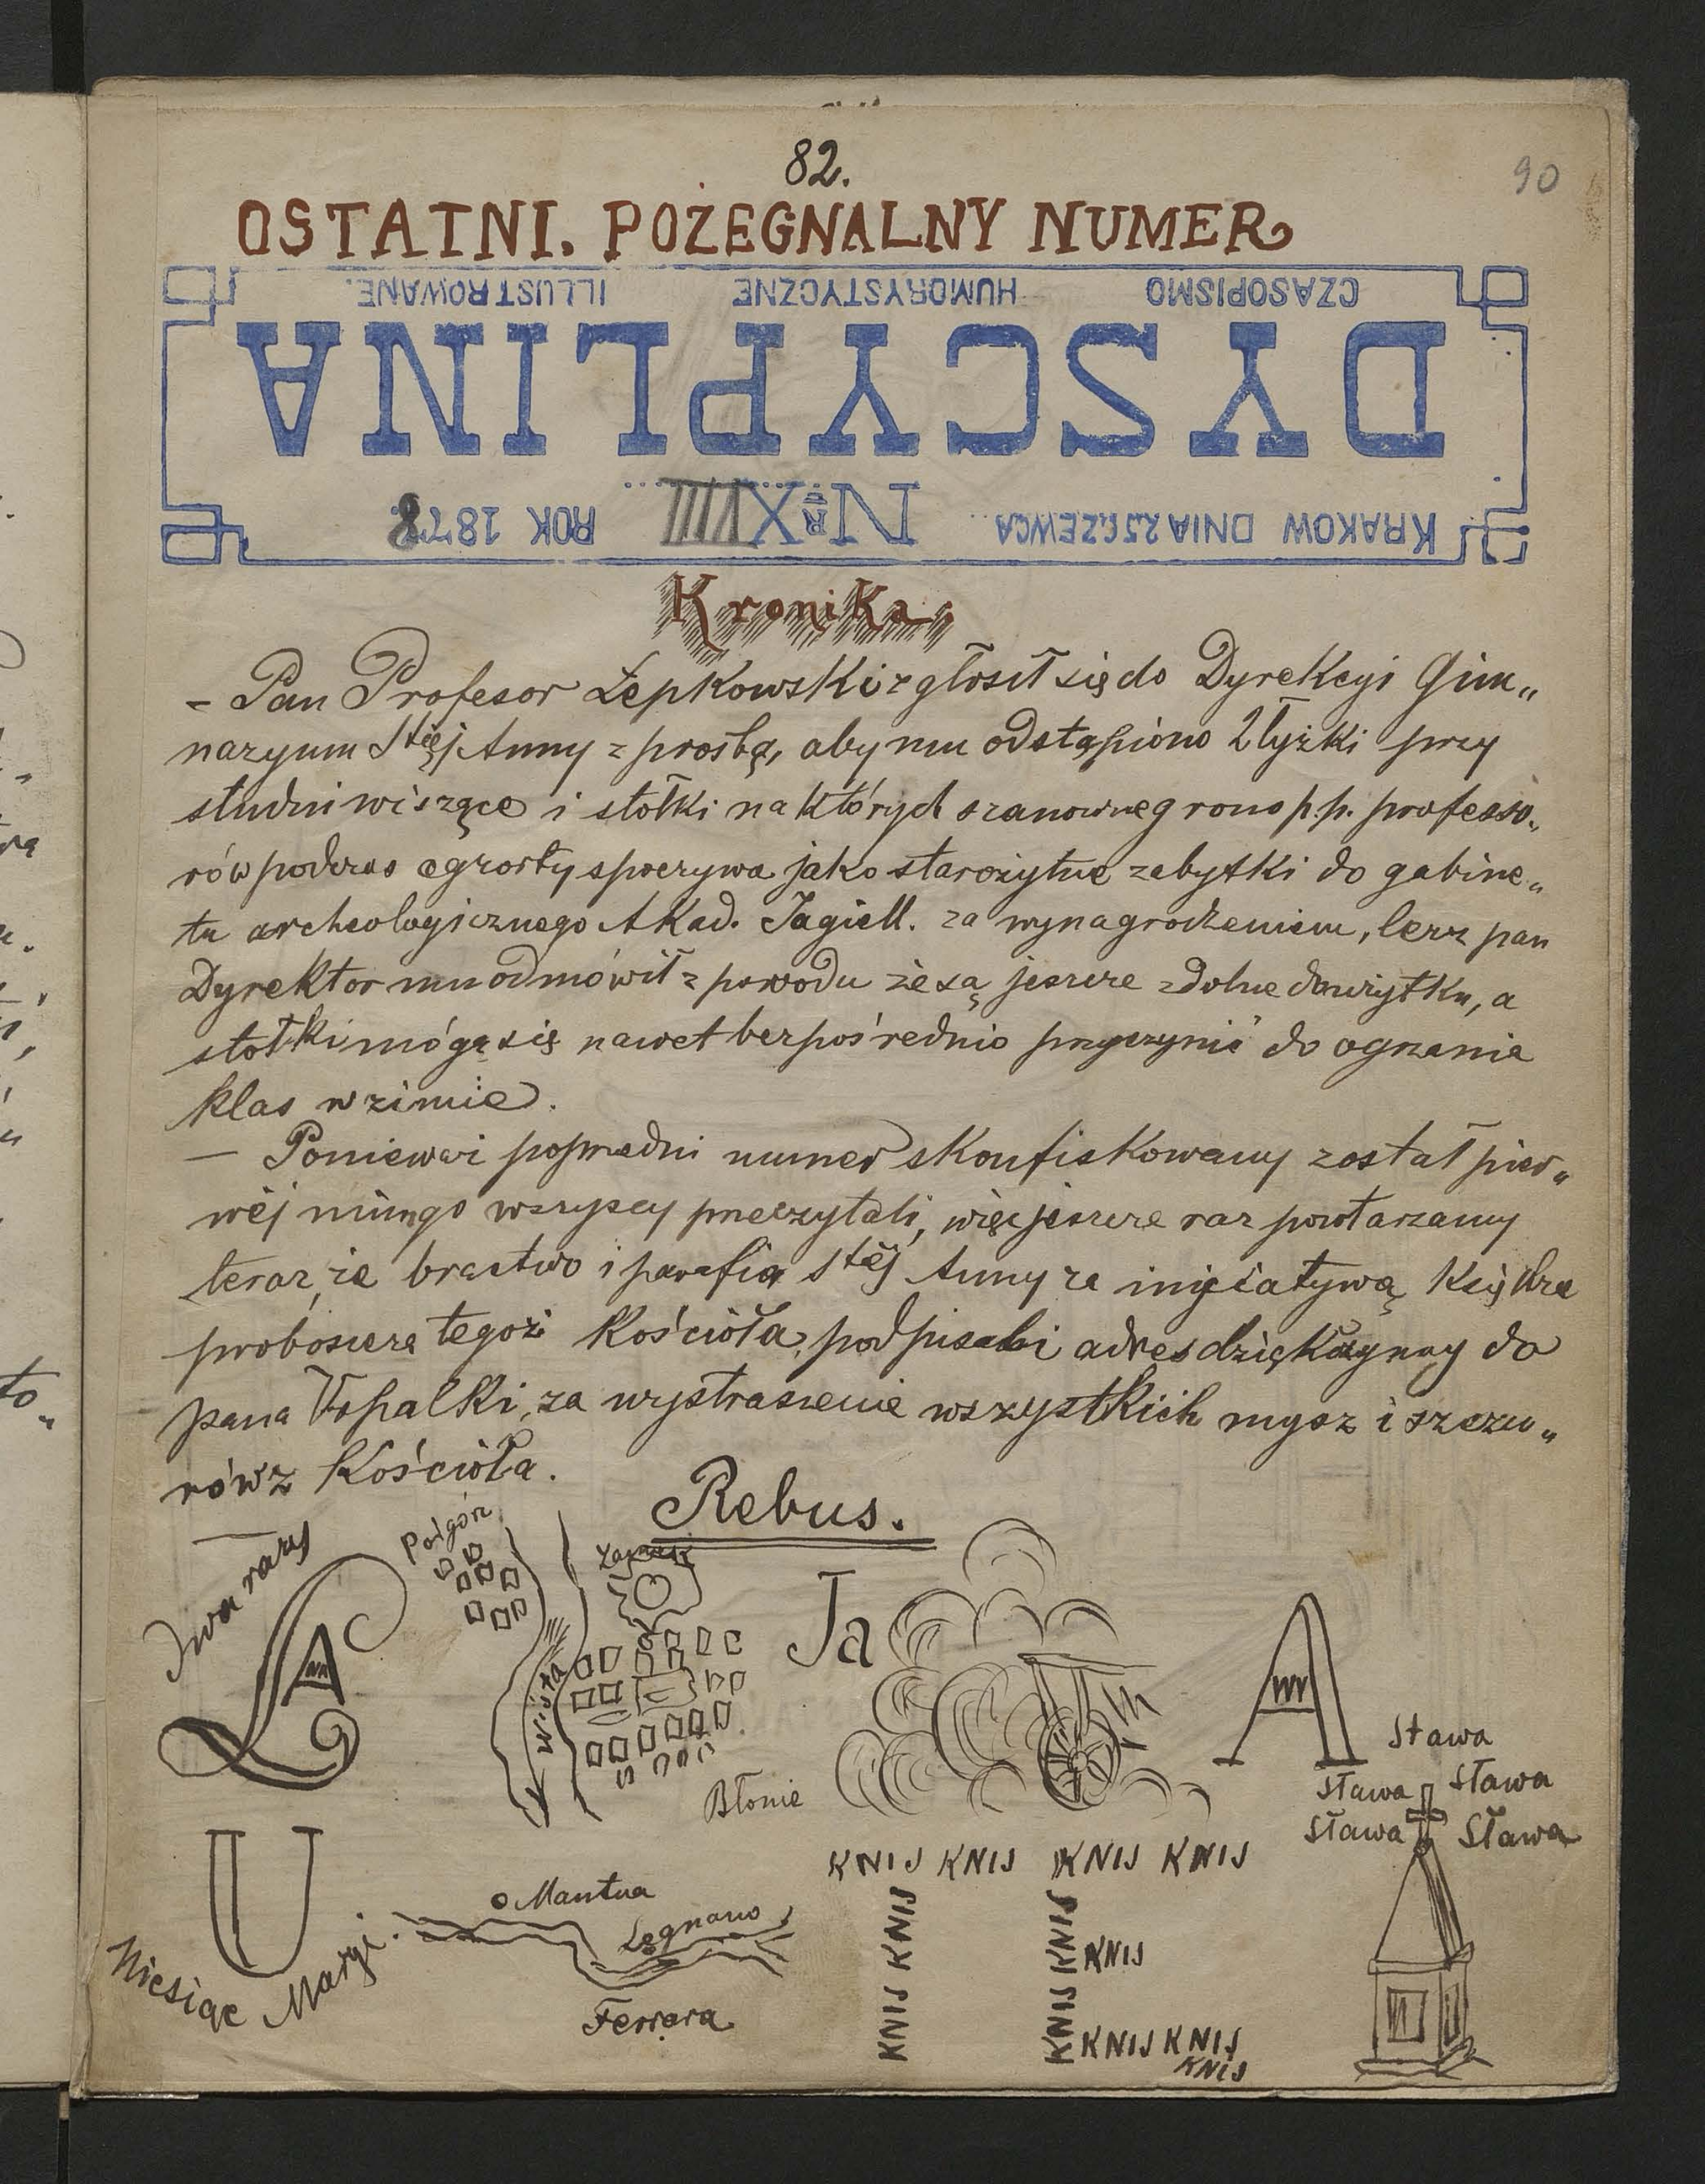 82.
90
OSTATNI. POŻEGNALNY NUMER
CZASOPISMO HUMORYSTYCZNE ILLUSTROWANE.
DYSCYPLINA
KRAKOW DNIA 25 CZEWCA NR XVIII ROK 1878
Kronika.
– Pan Profesor Łepkowski zgłosił się do Dyrekcyi Gim„
nazyum Stéj Anny z prośbą, aby mu odstąpiono 2 łyżki przy
studni wiszące i stołki na których szanowne grono p.p. professo„
rów podczas egzorty spoczywa jako starożytne zabytki do gabine„
tu archeologicznego Akad. Jagiell. za wynagrodzeniem, lecz pan
Dyrektor mu odmówił z powodu że są jeszcze zdolne do użytku, a
stołki mógą się nawet bezpośrednio przyczynić do ogrzania
klas w zimie.
– Ponieważ poprzedni numer skonfiskowany został pier„
wéj nim go wszyscy przeczytali, więc jeszcze raz powtarzamy
teraz, że bractwo i parafia Stéj Anny za iniciatywą Księdza
proboszcza tegoż Kościoła, podpisali adres dziękczynny do
pana Kopalki, za wystraszenie wszystkich mysz i szczu„
rów z Kościoła.
Rebus.
Dwa razy
Ł A
Podgórz
Wisła
Błonie
Ja
A
Sława
Sława Sława
Sława Sława
U
Miesiąc Maryi.
Mantua
Legnano
Ferrara
KNIJ KNIJ KNIJ KNIJ
KNIJ KNIJ
KNIJ KNIJ
KNIJ
KNIJ KNIJ
KNIJ